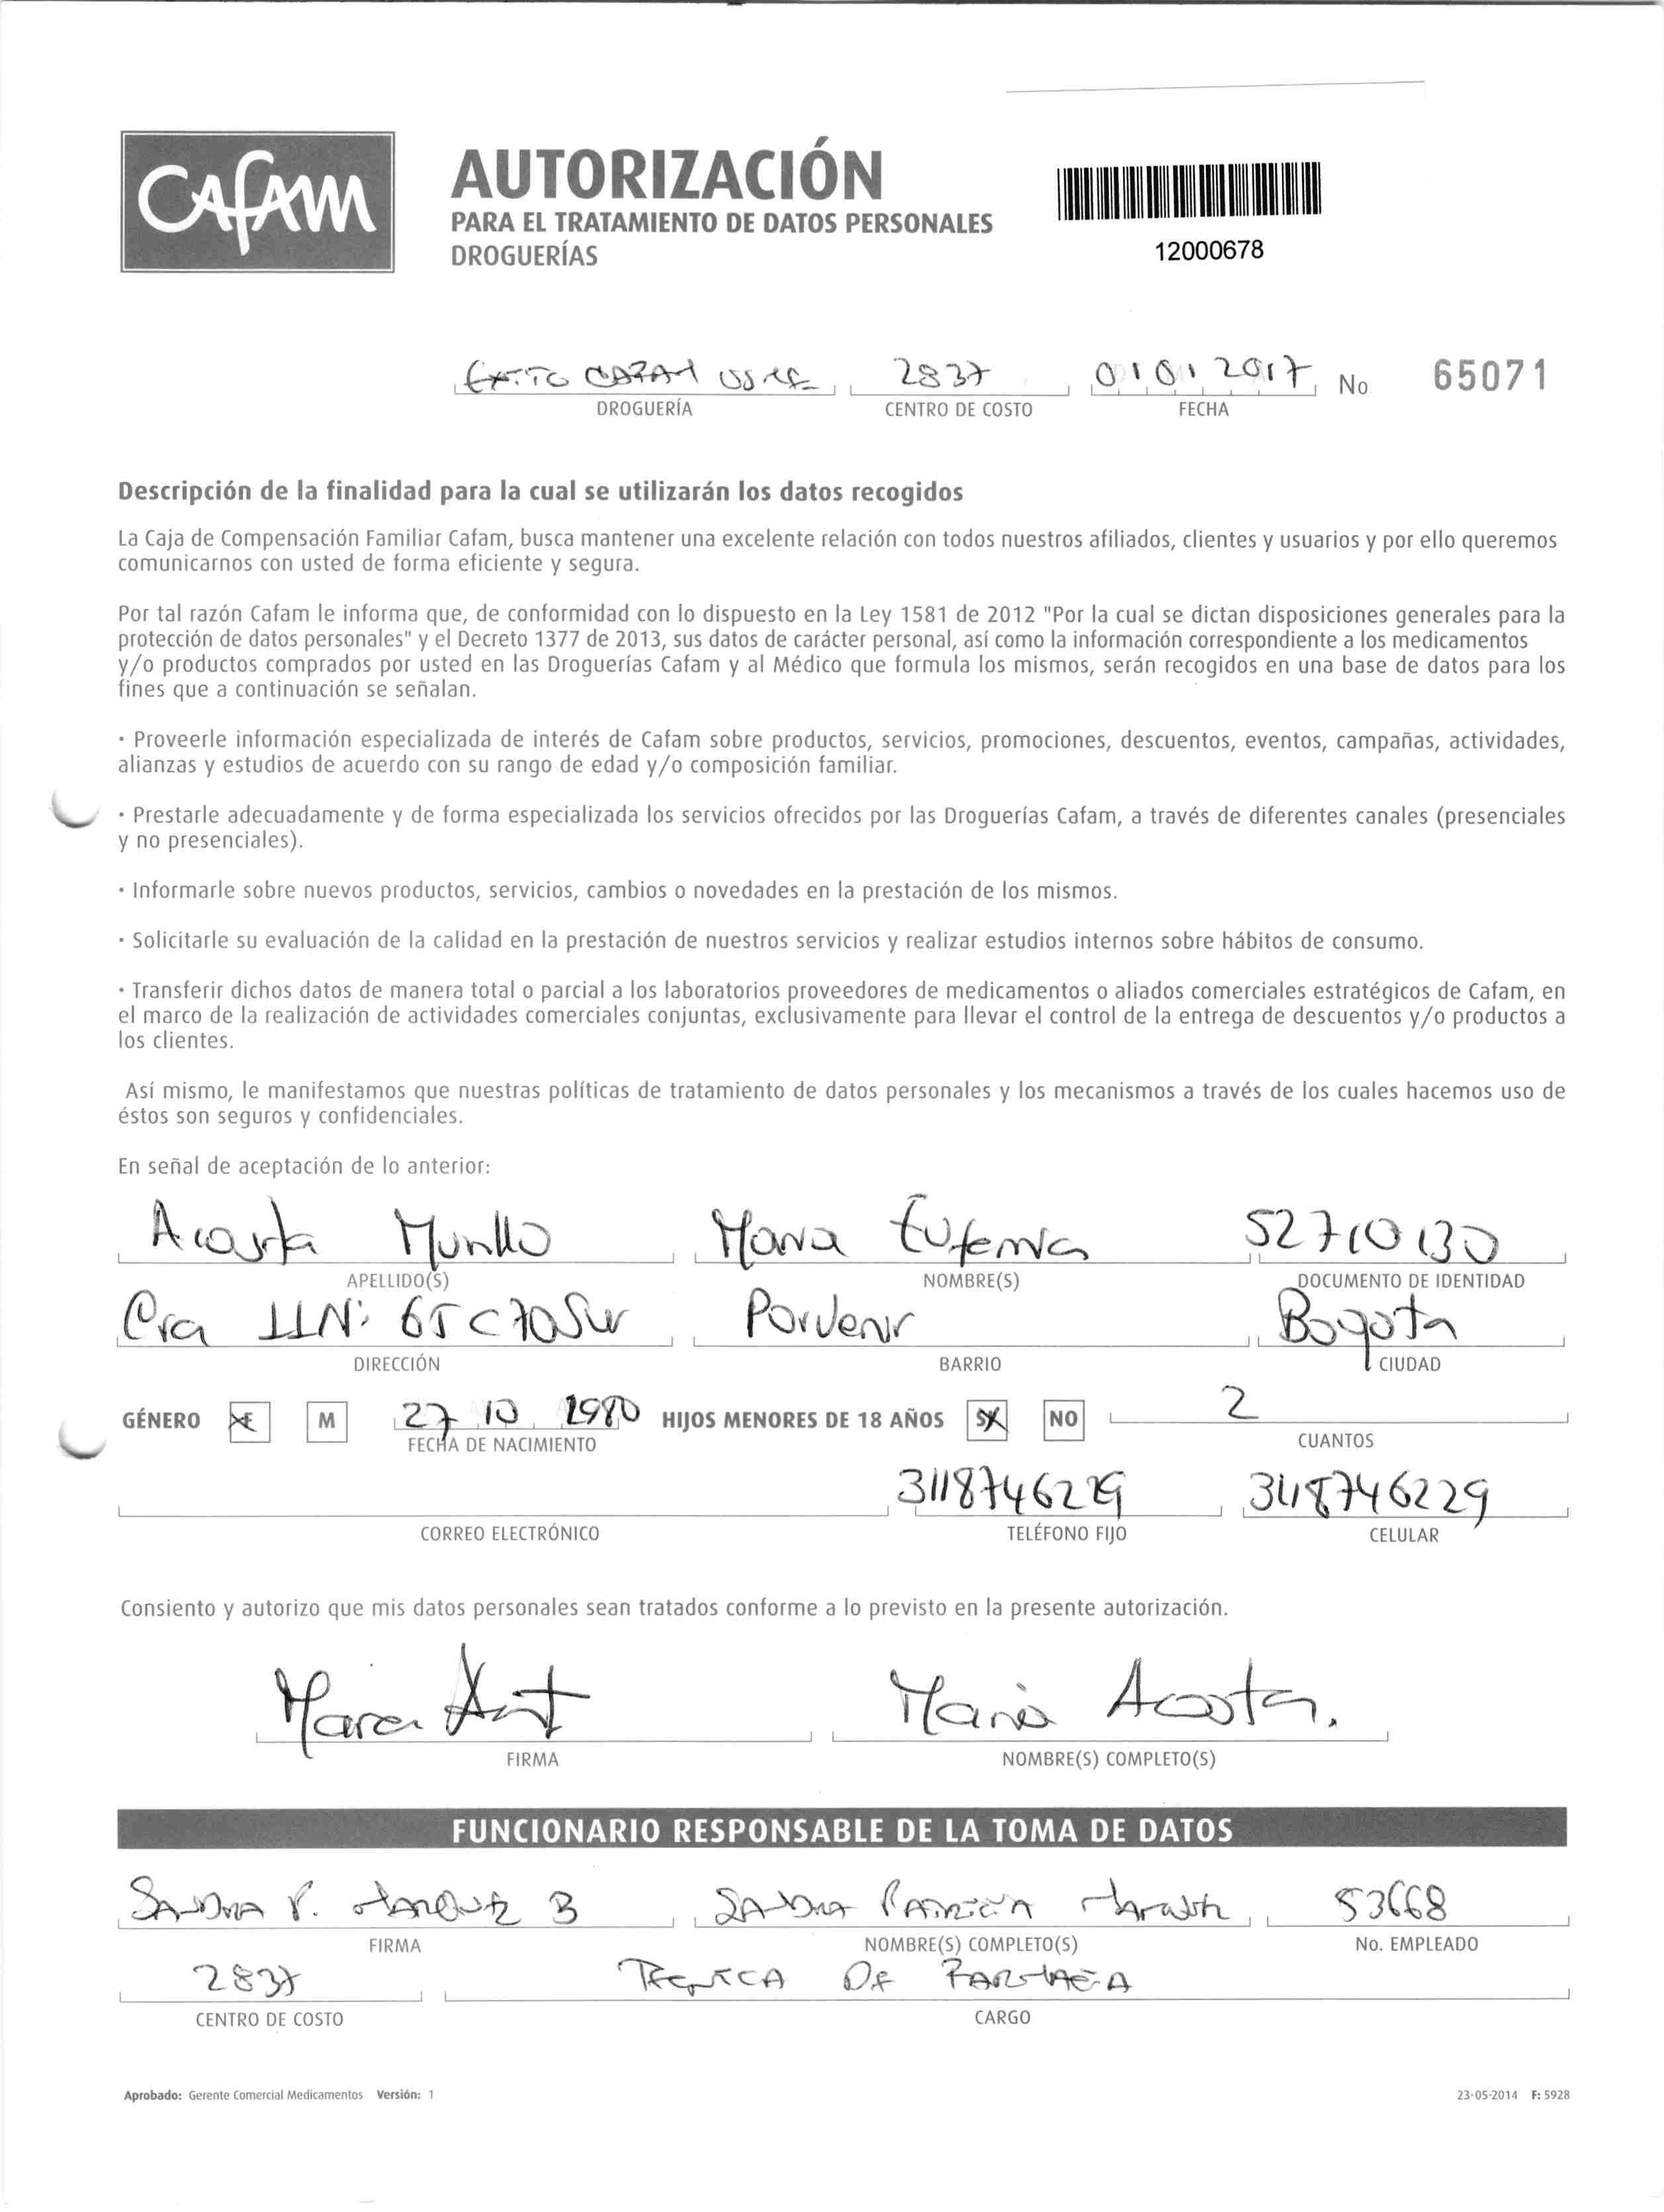 Cafam
AUTORIZACIÓN
PARA EL TRATAMIENTO DE DATOS PERSONALES
DROGUERÍAS
12000678
EXITO CAFAM 2837 01 01 2017 No 65071
DROGUERÍA CENTRO DE COSTO FECHA
Descripción de la finalidad para la cual se utilizarán los datos recogidos
La Caja de Compensación Familiar Cafam, busca mantener una excelente relación con todos nuestros afiliados, clientes y usuarios y por ello queremos
comunicarnos con usted de forma eficiente y segura.
Por tal razón Cafam le informa que, de conformidad con lo dispuesto en la Ley 1581 de 2012 "Por la cual se dictan disposiciones generales para la
protección de datos personales" y el Decreto 1377 de 2013, sus datos de carácter personal, así como la información correspondiente a los medicamentos
y/o productos comprados por usted en las Droguerías Cafam y al Médico que formula los mismos, serán recogidos en una base de datos para los
fines que a continuación se señalan.
· Proveerle información especializada de interés de Cafam sobre productos, servicios, promociones, descuentos, eventos, campañas, actividades,
alianzas y estudios de acuerdo con su rango de edad y/o composición familiar.
· Prestarle adecuadamente y de forma especializada los servicios ofrecidos por las Droguerías Cafam, a través de diferentes canales (presenciales
y no presenciales).
· Informarle sobre nuevos productos, servicios, cambios o novedades en la prestación de los mismos.
· Solicitarle su evaluación de la calidad en la prestación de nuestros servicios y realizar estudios internos sobre hábitos de consumo.
· Transferir dichos datos de manera total o parcial a los laboratorios proveedores de medicamentos o aliados comerciales estratégicos de Cafam, en
el marco de la realización de actividades comerciales conjuntas, exclusivamente para llevar el control de la entrega de descuentos y/o productos a
los clientes.
Así mismo, le manifestamos que nuestras políticas de tratamiento de datos personales y los mecanismos a través de los cuales hacemos uso de
éstos son seguros y confidenciales.
En señal de aceptación de lo anterior:
Acosta Murillo Maria Eufemia 52710130
APELLIDO(S) NOMBRE(S) DOCUMENTO DE IDENTIDAD
Cra 11N: 65 C 70 Sur Porvenir Bogota
DIRECCIÓN BARRIO CIUDAD
GÉNERO F M 27 10 1980 HIJOS MENORES DE 18 AÑOS SI NO 2
FECHA DE NACIMIENTO CUANTOS
3118746229 3118746229
CORREO ELECTRÓNICO TELÉFONO FIJO CELULAR
Consiento y autorizo que mis datos personales sean tratados conforme a lo previsto en la presente autorización.
Maria Maria Acosta.
FIRMA NOMBRE(S) COMPLETO(S)
FUNCIONARIO RESPONSABLE DE LA TOMA DE DATOS
SANDRA P. B SANDRA PATRICIA 53668
FIRMA NOMBRE(S) COMPLETO(S) No. EMPLEADO
2837 TECNICA DE FARMACIA
CENTRO DE COSTO CARGO
Aprobado: Gerente Comercial Medicamentos Versión: 1 23-05-2014 F: 5928